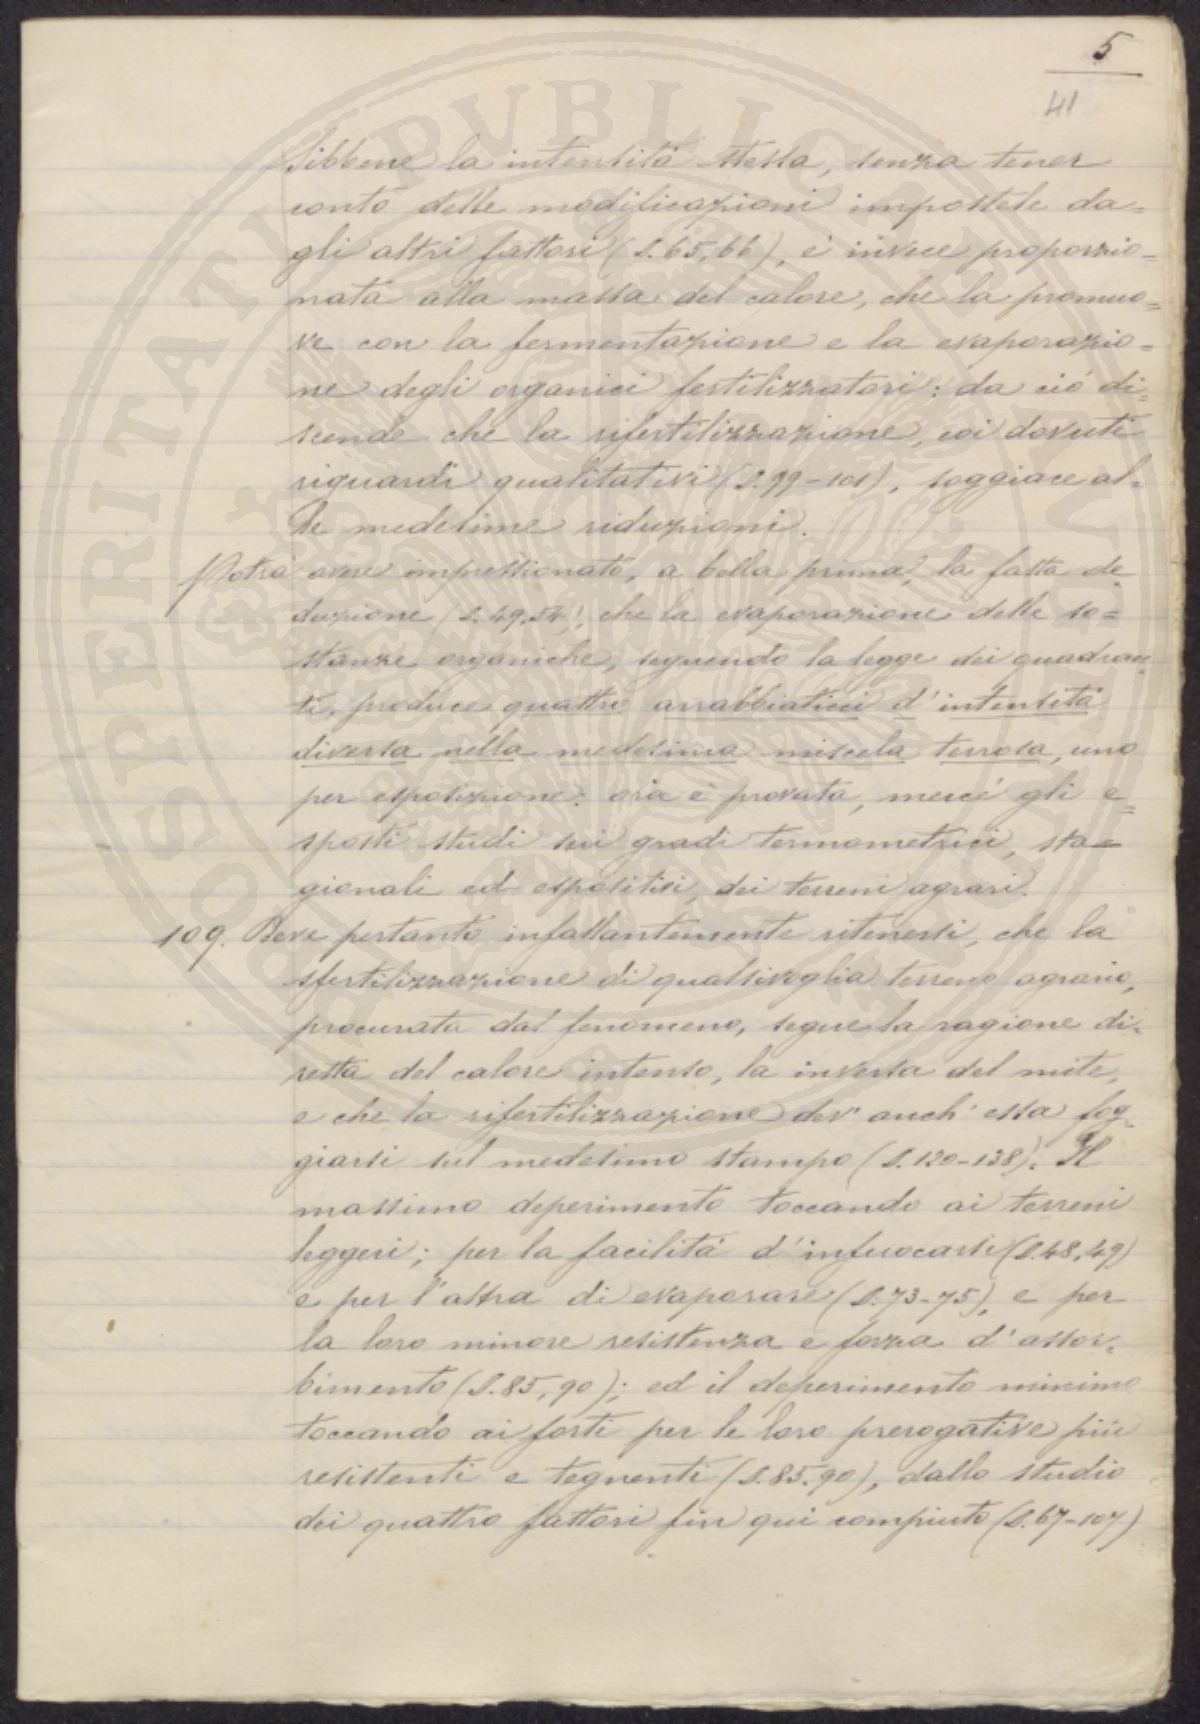 5
41
Sibbene la intensità stessa, senza tener
conto delle modificazioni impostele da=
gli altri fattori (S. 65, 66), è invece proporzio=
nata alla massa del calore, che la promuo=
ve con la fermentazione e la evaporazio=
ne degli organici fertilizzatori: da ciò di=
scende che la rifertilizzazione, coi dovuti
riguardi qualitativi (S. 99-101), soggiace al=
le medesime riduzioni.
Potrà avere impressionato, a bella prima, la fatta de
duzione (S. 49, 54), che la evaporazione delle so=
stanze organiche, seguendo la legge dei quadran
ti, produce quattro arrabbiaticci d'intensità
diversa nella medesima miscela terrosa, uno
per esposizione: ora è provata, mercé gli e=
sposti studi sui gradi termometrici, sta=
gionali ed espositivi, dei terreni agrari.
109. Deve pertanto infallantemente ritenersi, che la
sfertilizzazione di qualsivoglia terreno agrario,
procurata dal fenomeno, segue la ragione di=
retta del calore intenso, la inversa del mite,
e che la rifertilizzazione dev' anch' essa fog=
giarsi sul medesimo stampo (S. 120-138). Il
massimo deperimento toccando ai terreni
leggeri; per la facilità d'infuocarsi (S. 48, 49)
e per l'altra di evaporare (S. 73-75), e per
la loro minore resistenza e forza d'assor=
bimento (S. 85, 90); ed il deperimento minimo
toccando ai forti per le loro prerogative più
resistenti e tegnenti (S. 85. 90), dallo studio
dei quattro fattori fin qui compiuto (S. 67-107)
PROSPERITATI PVBLICAE